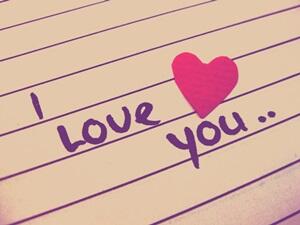 I
LOVE
you..